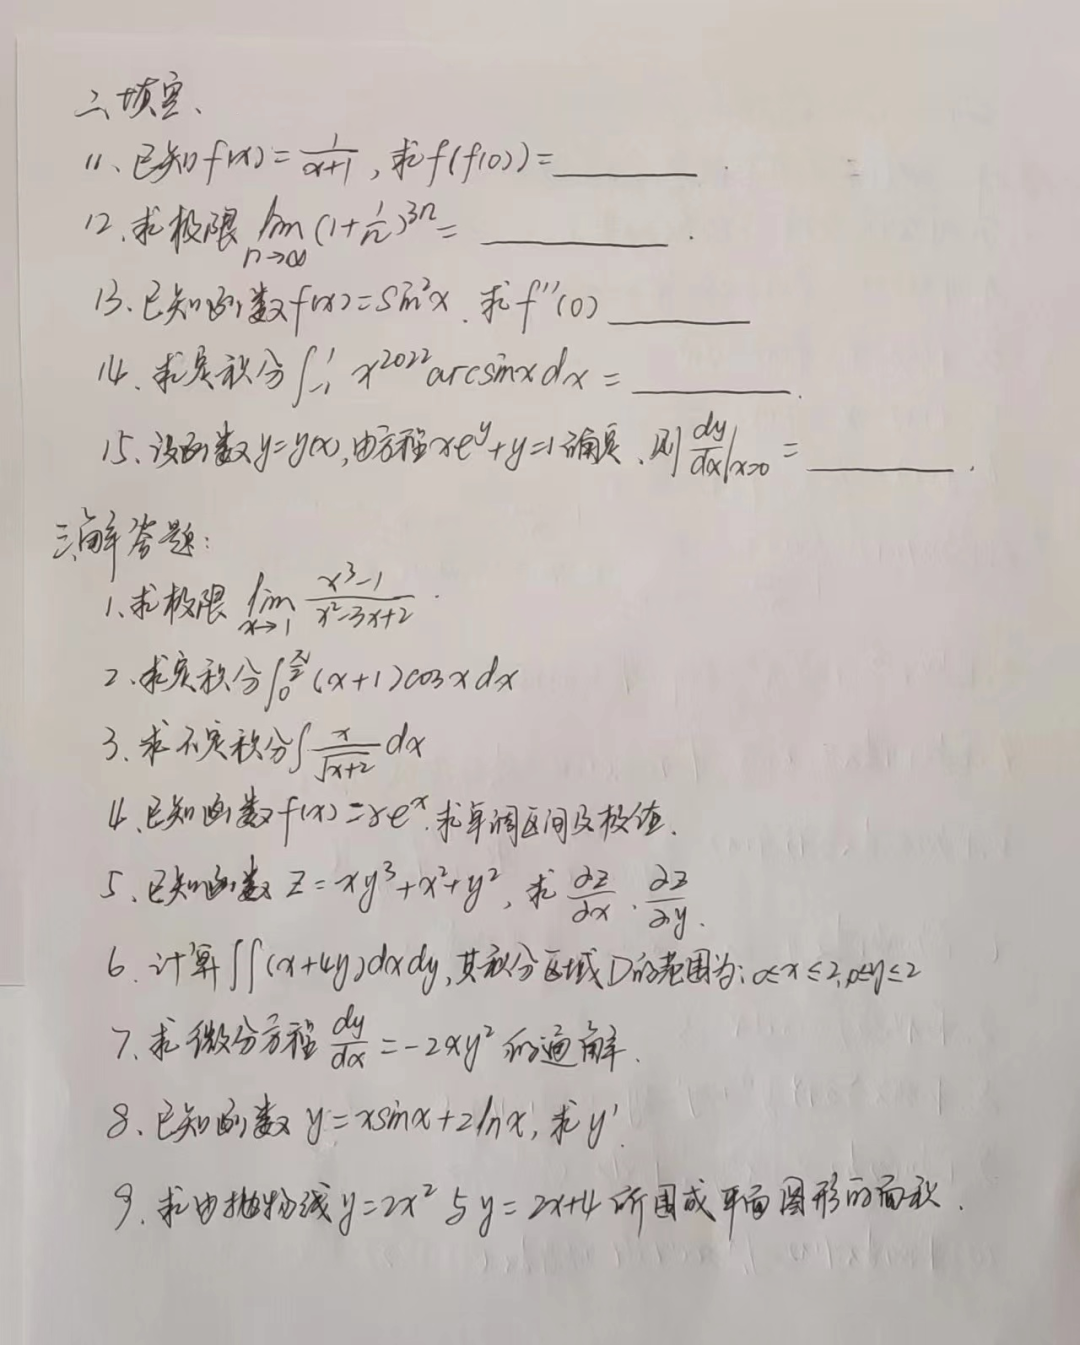 二、填空、
11、已知f(x)=1/(x+1),求f(f(0))=______
12、求极限 lim n→∞ (1+1/n)^3n = ______.
13、已知函数f(x)=sin²x.求f''(0)______
14、求定积分∫_-1^1 x^2022 arcsinx dx = ______.
15、设函数y=y(x),由方程xe^y+y=1确定、则 dy/dx|x=0 = ______.
三、解答题:
1、求极限 lim x→1 (x³-1)/(x²-3x+2).
2、求定积分∫_0^(π/2) (x+1)cosx dx
3、求不定积分∫ x/√(x+2) dx
4、已知函数f(x)=xe^x.求单调区间及极值.
5、已知函数 z=xy³+x²+y², 求 ∂z/∂x、∂z/∂y.
6、计算∬(x+4y)dxdy,其积分区域D的范围为:0≤x≤2,0≤y≤2
7、求微分方程 dy/dx=-2xy² 的通解.
8、已知函数 y=xsinx+2lnx, 求y'.
9、求由抛物线y=2x²与y=2x+4所围成平面图形的面积.